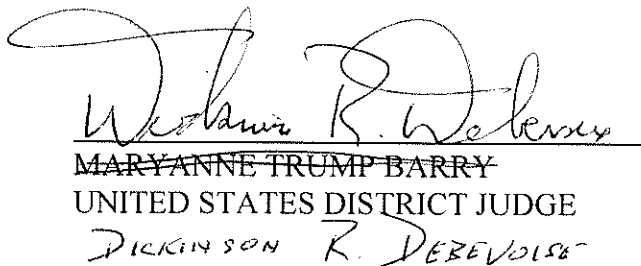 Dickinson R. Debevoise
MARYANNE TRUMP BARRY
UNITED STATES DISTRICT JUDGE
DICKINSON R. DEBEVOISE